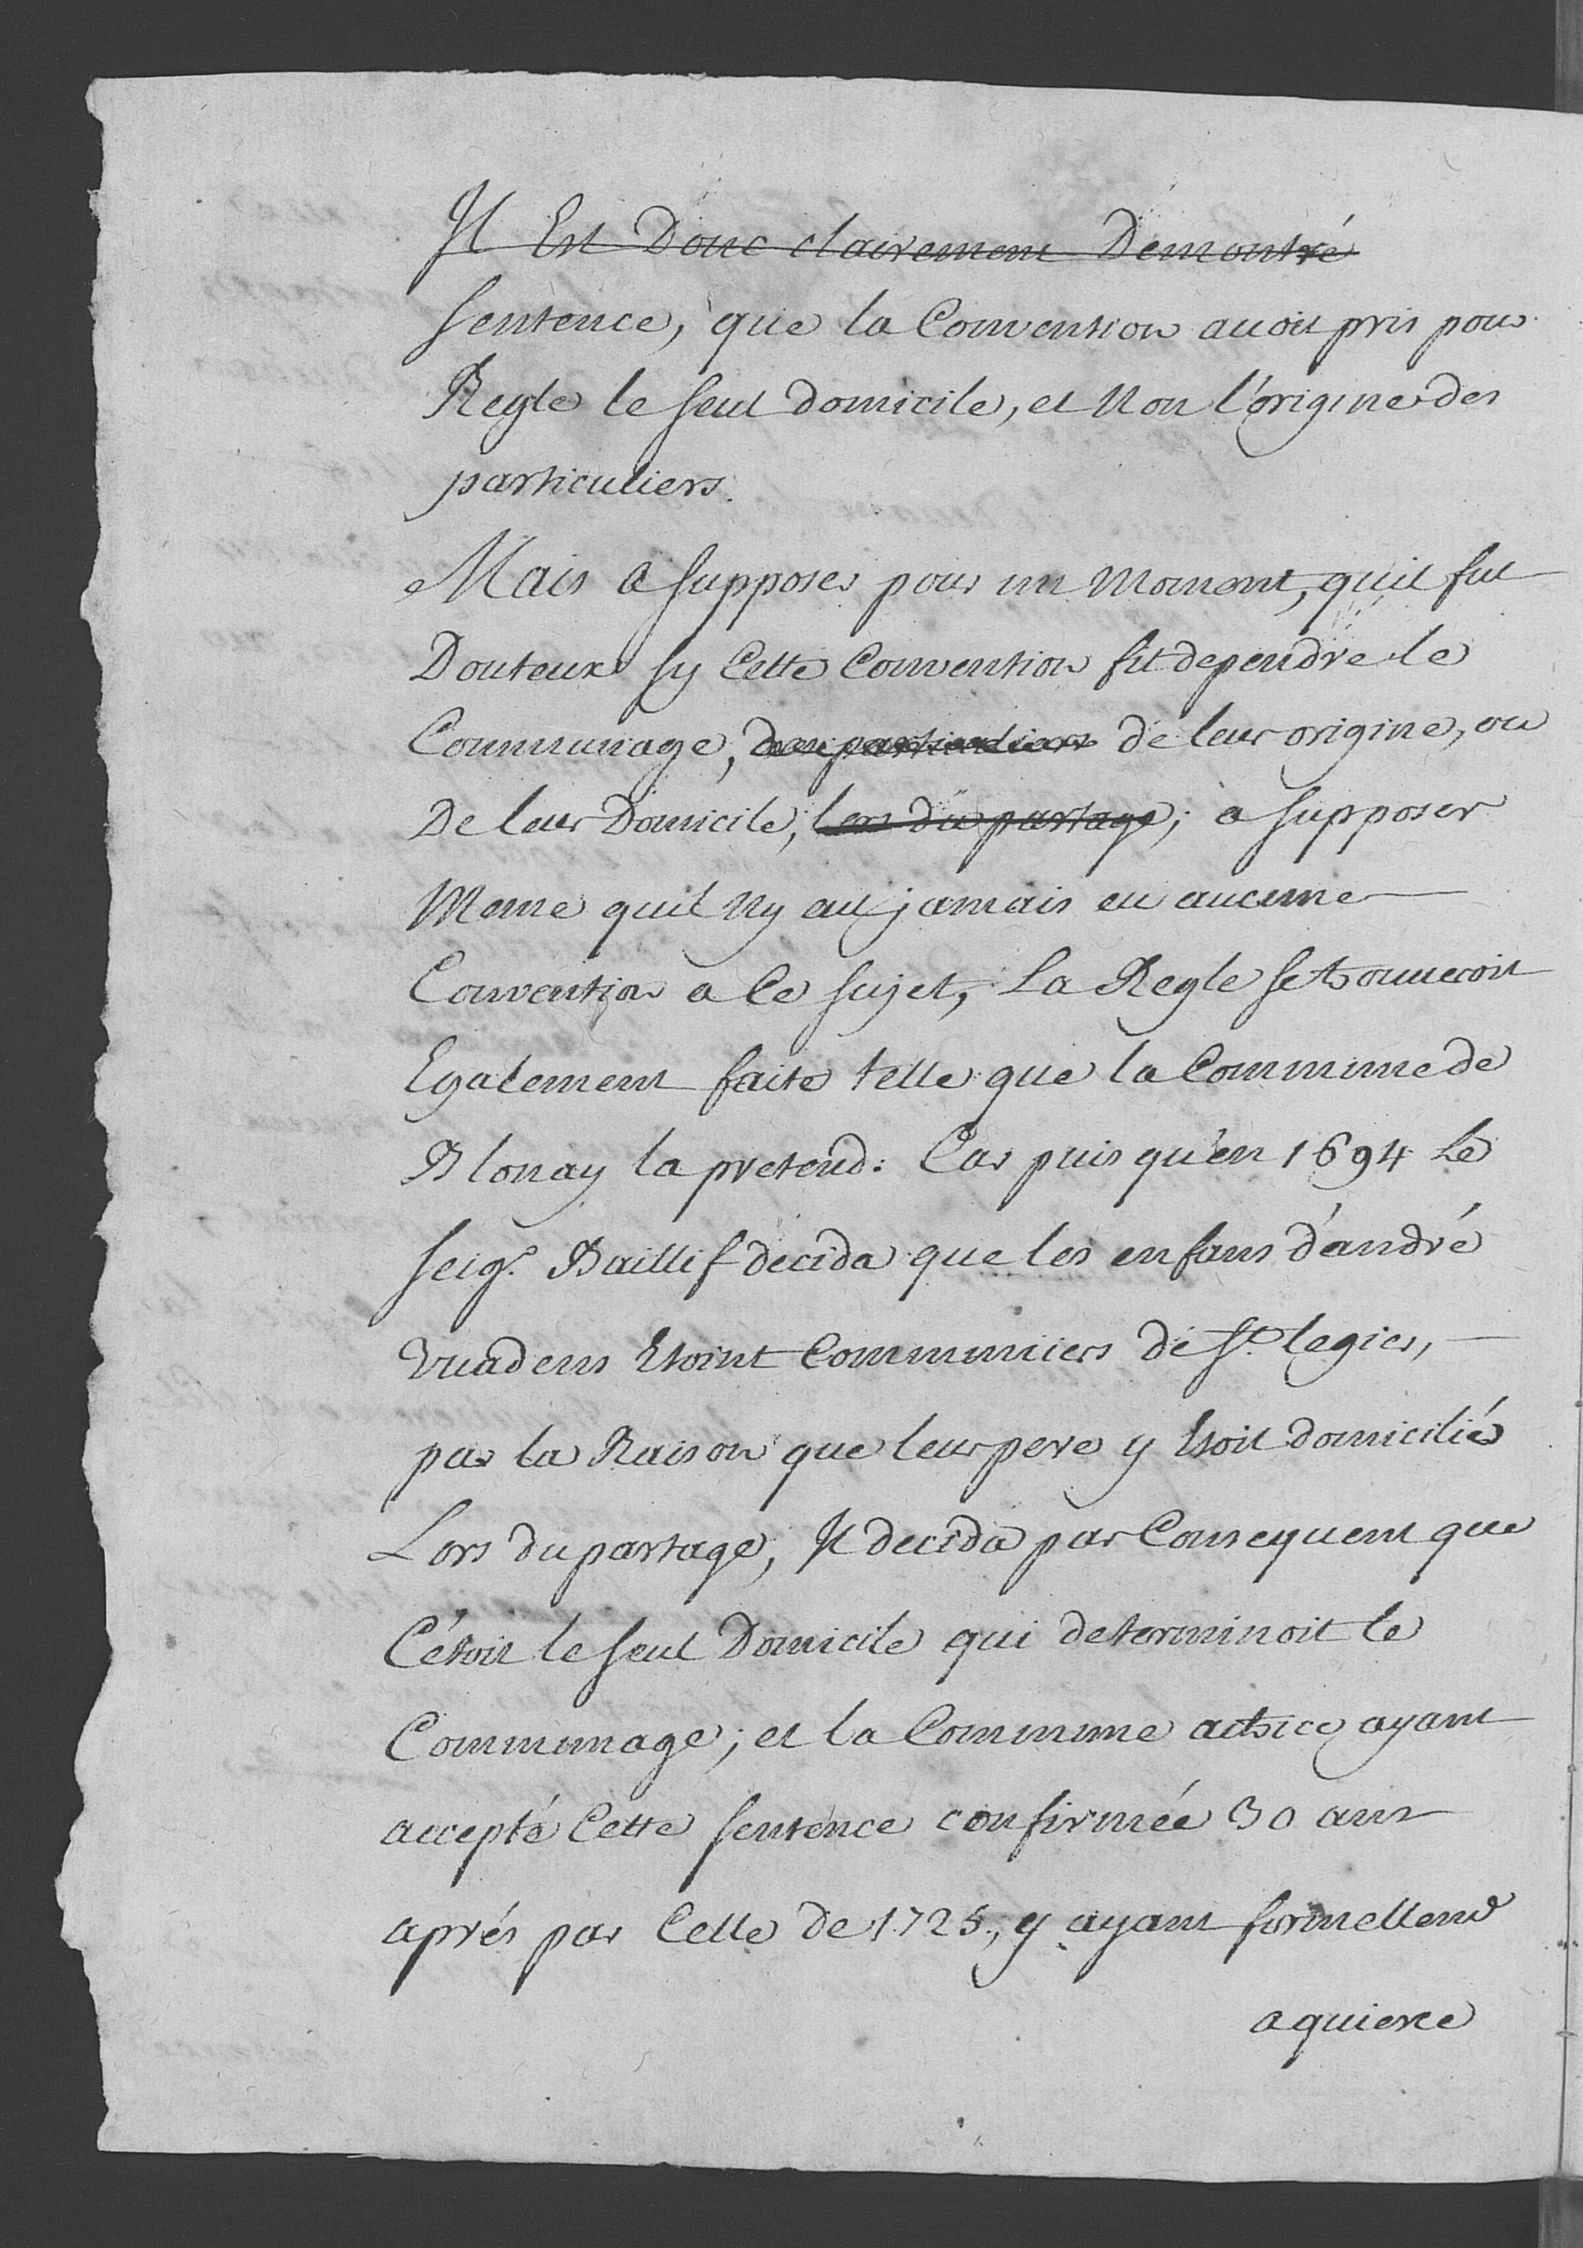 Il Est Donc clairement Demontré
sentence, que la Convention avoit pris pour
Regle le seul domicile, et Non l'origine des
particuliers.
Mais a supposer pour un Moment, quil fut
Douteux sy Cette Convention fit dependre le
Communage, des particuliers de leur origine, ou
De leur Domicile, lors du partage; a supposer
Meme quil Ny aut jamais eu aucune
Convention a Ce sujet, La Regle se trouveroit
Egalement faite telle que la Commune de
Blonay la pretend: Car puis qu'en 1694 Le
seigr. Baillif decida que les enfans d'andré
Vuadens Etoint Communiers de St. legier,
par la Raison que leur pere y Etoit domicilié
Lors du partage, Il decida par Consequent que
C'étoit le seul Domicile qui determinoit le
Communage; et la Commune actrice ayant
accepté Cette sentence confirmée 30 ans
aprés par Celle de 1725, y ayant formellemt
aquiesce